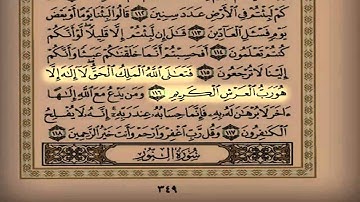 كَمْ لَبِثْتُمْ فِي ٱلْأَرْضِ عَدَدَ سِنِينَ ١١٢ قَالُوا۟ لَبِثْنَا يَوْمًا أَوْ بَعْضَ
يَوْمٍ فَسْـَٔلِ ٱلْعَآدِّينَ ١١٣ قَـٰلَ إِن لَّبِثْتُمْ إِلَّا قَلِيلًا لَّوْ أَنَّكُمْ
كُنتُمْ تَعْلَمُونَ ١١٤ أَفَحَسِبْتُمْ أَنَّمَا خَلَقْنَـٰكُمْ عَبَثًا وَأَنَّكُمْ
إِلَيْنَا لَا تُرْجَعُونَ ١١٥ فَتَعَـٰلَى ٱللَّهُ ٱلْمَلِكُ ٱلْحَقُّ لَآ إِلَـٰهَ إِلَّا
هُوَ رَبُّ ٱلْعَرْشِ ٱلْكَرِيمِ ١١٦ وَمَن يَدْعُ مَعَ ٱللَّهِ إِلَـٰهًا
ءَاخَرَ لَا بُرْهَـٰنَ لَهُۥ بِهِۦ فَإِنَّمَا حِسَابُهُۥ عِندَ رَبِّهِۦٓ إِنَّهُۥ لَا يُفْلِحُ
ٱلْكَـٰفِرُونَ ١١٧ وَقُل رَّبِّ ٱغْفِرْ وَٱرْحَمْ وَأَنتَ خَيْرُ ٱلرَّٰحِمِينَ ١١٨
سُورَةُ ٱلنُّورِ
٣٤٩